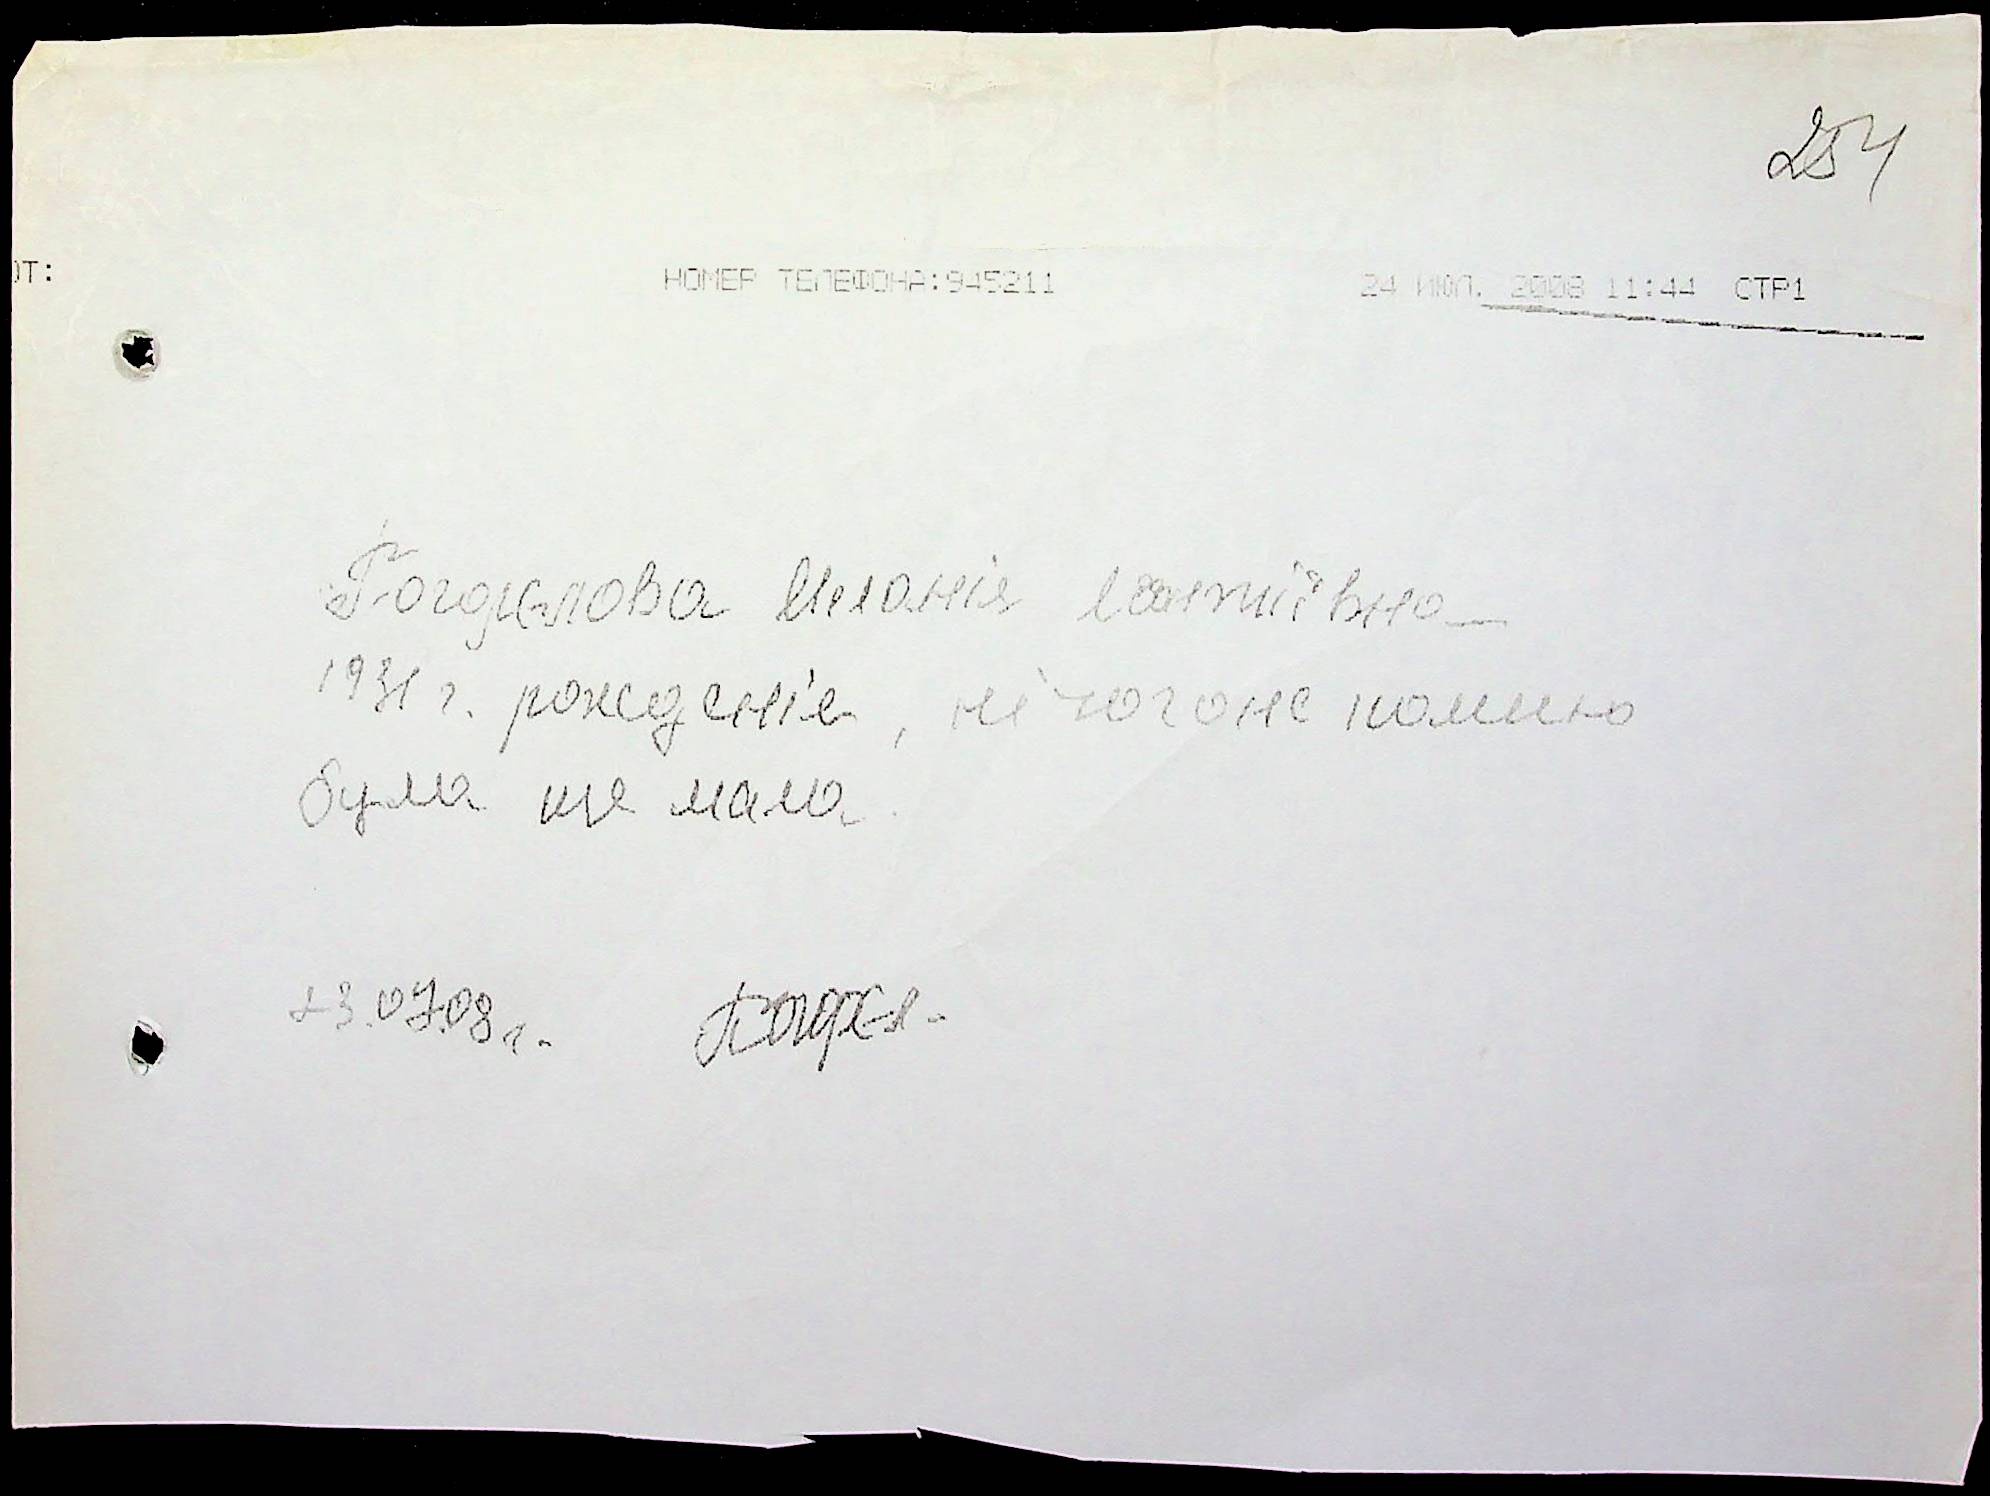 254
ОТ: НОМЕР ТЕЛЕФОНА:945211 24 ИЮЛ. 2008 11:44 СТР1
Меланія
1931 г. рожденія, нічого не помню
була ще мала.
23.07.08 г.